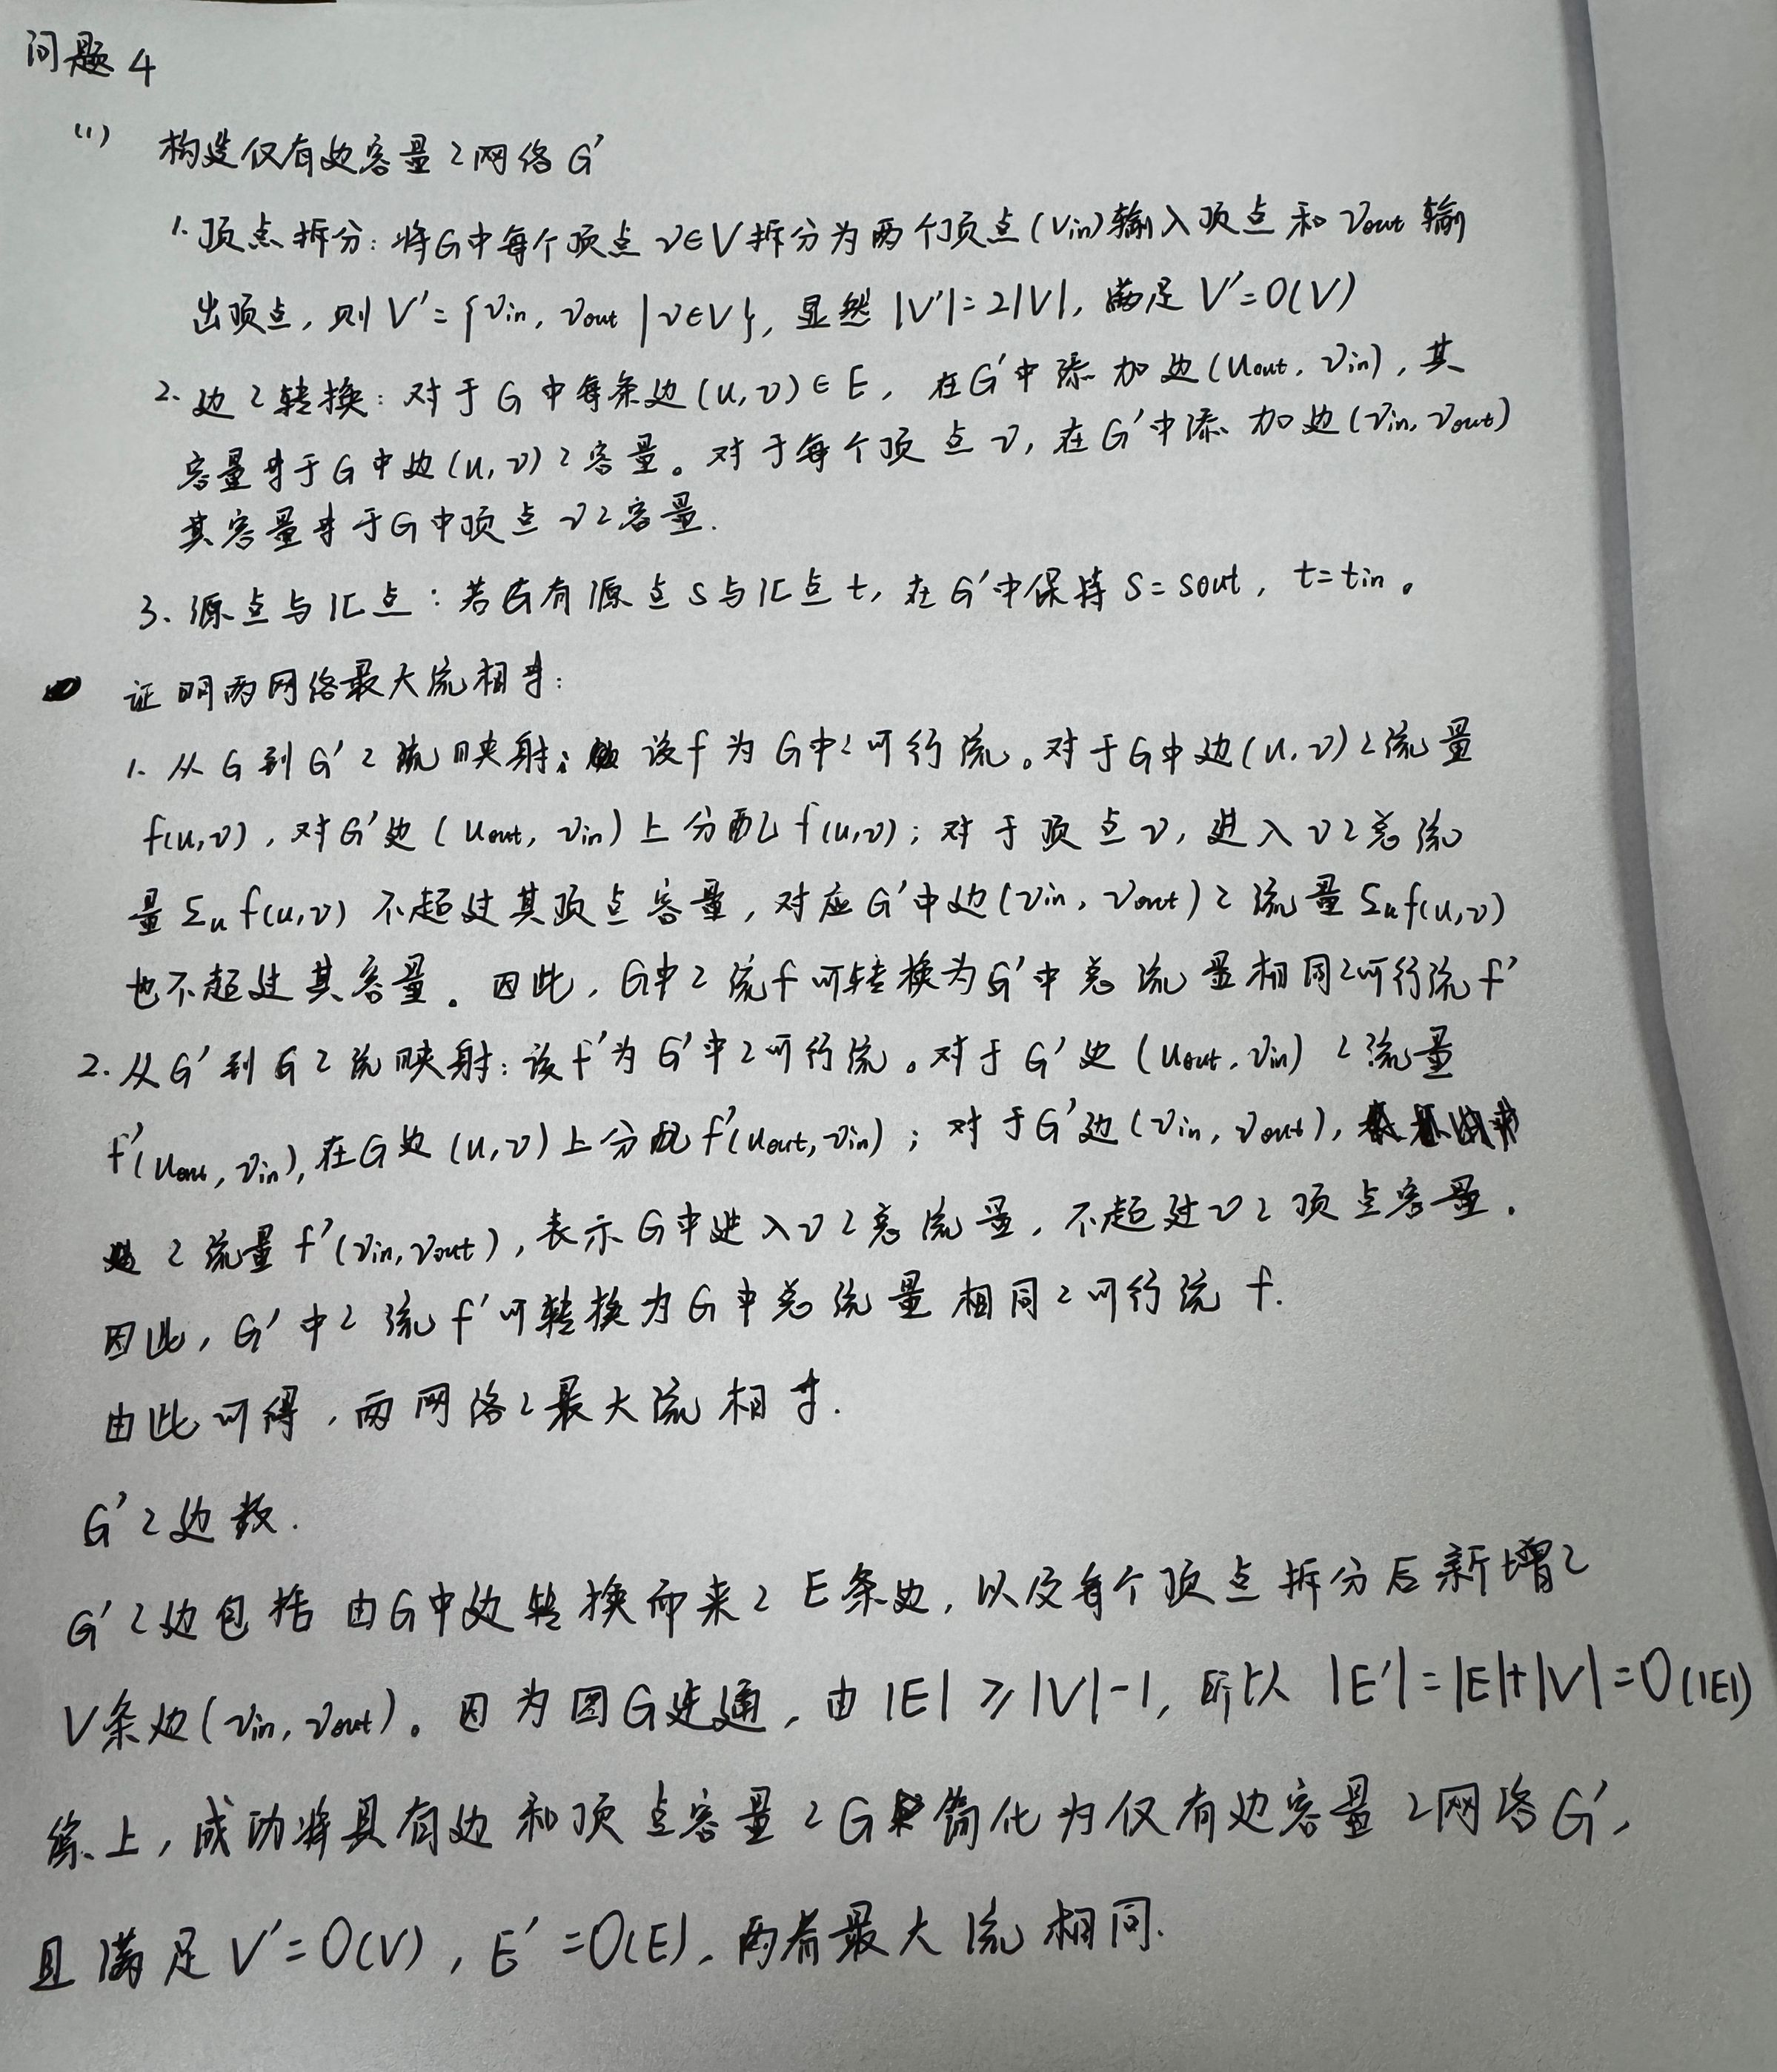 问题4
(1) 构造仅有边容量之网络G′
1. 顶点拆分：将G中每个顶点v∈V拆分为两个顶点(vin)输入顶点和vout输
出顶点，则V′={vin, vout | v∈V}，显然|V′|=2|V|，满足V′=O(V)
2. 边之转换：对于G中每条边(u,v)∈E，在G′中添加边(uout, vin)，其
容量等于G中边(u,v)之容量。对于每个顶点v，在G′中添加边(vin, vout)
其容量等于G中顶点v之容量.
3. 源点与汇点：若G有源点s与汇点t，在G′中保持S=sout，t=tin。
证明两网络最大流相等：
1. 从G到G′之流映射：设f为G中之可行流。对于G中边(u,v)之流量
f(u,v)，对G′边(uout, vin)上分配f(u,v)；对于顶点v，进入v之总流
量Σu f(u,v)不超过其顶点容量，对应G′中边(vin, vout)之流量Σu f(u,v)
也不超过其容量。因此，G中之流f可转换为G′中总流量相同之可行流f′
2. 从G′到G之流映射：设f′为G′中之可行流。对于G′边(uout, vin)之流量
f′(uout, vin)，在G边(u,v)上分配f′(uout, vin)；对于G′边(vin, vout)，
之流量f′(vin, vout)，表示G中进入v之总流量，不超过v之顶点容量.
因此，G′中之流f′可转换为G中总流量相同之可行流f.
由此可得，两网络之最大流相等.
G′之边数.
G′之边包括由G中边转换而来之E条边，以及每个顶点拆分后新增之
V条边(vin, vout)。因为图G连通，由|E|≥|V|-1，所以|E′|=|E|+|V|=O(|E|)
综上，成功将具有边和顶点容量之G简化为仅有边容量之网络G′，
且满足V′=O(V)，E′=O(E)，两者最大流相同.